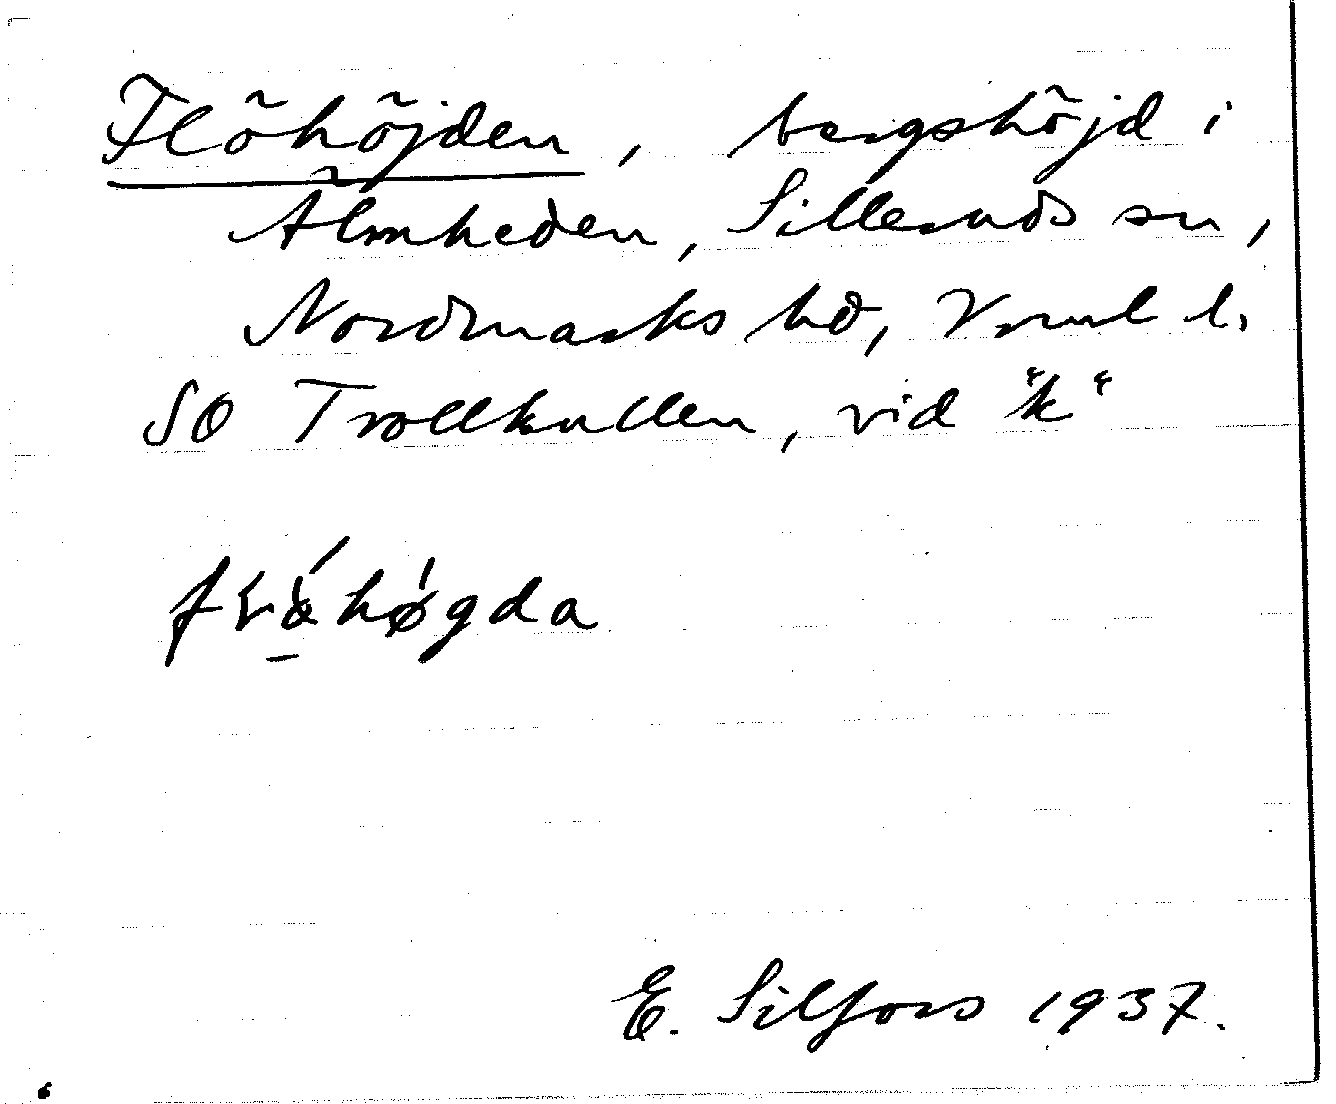 Flöhöjden, bergshöjd i
Älmheden, Silleruds sn,
Nordmarks hd, Vrml l.
SO Trollkullen, vid "k"
høgda
E. Silfors 1937.